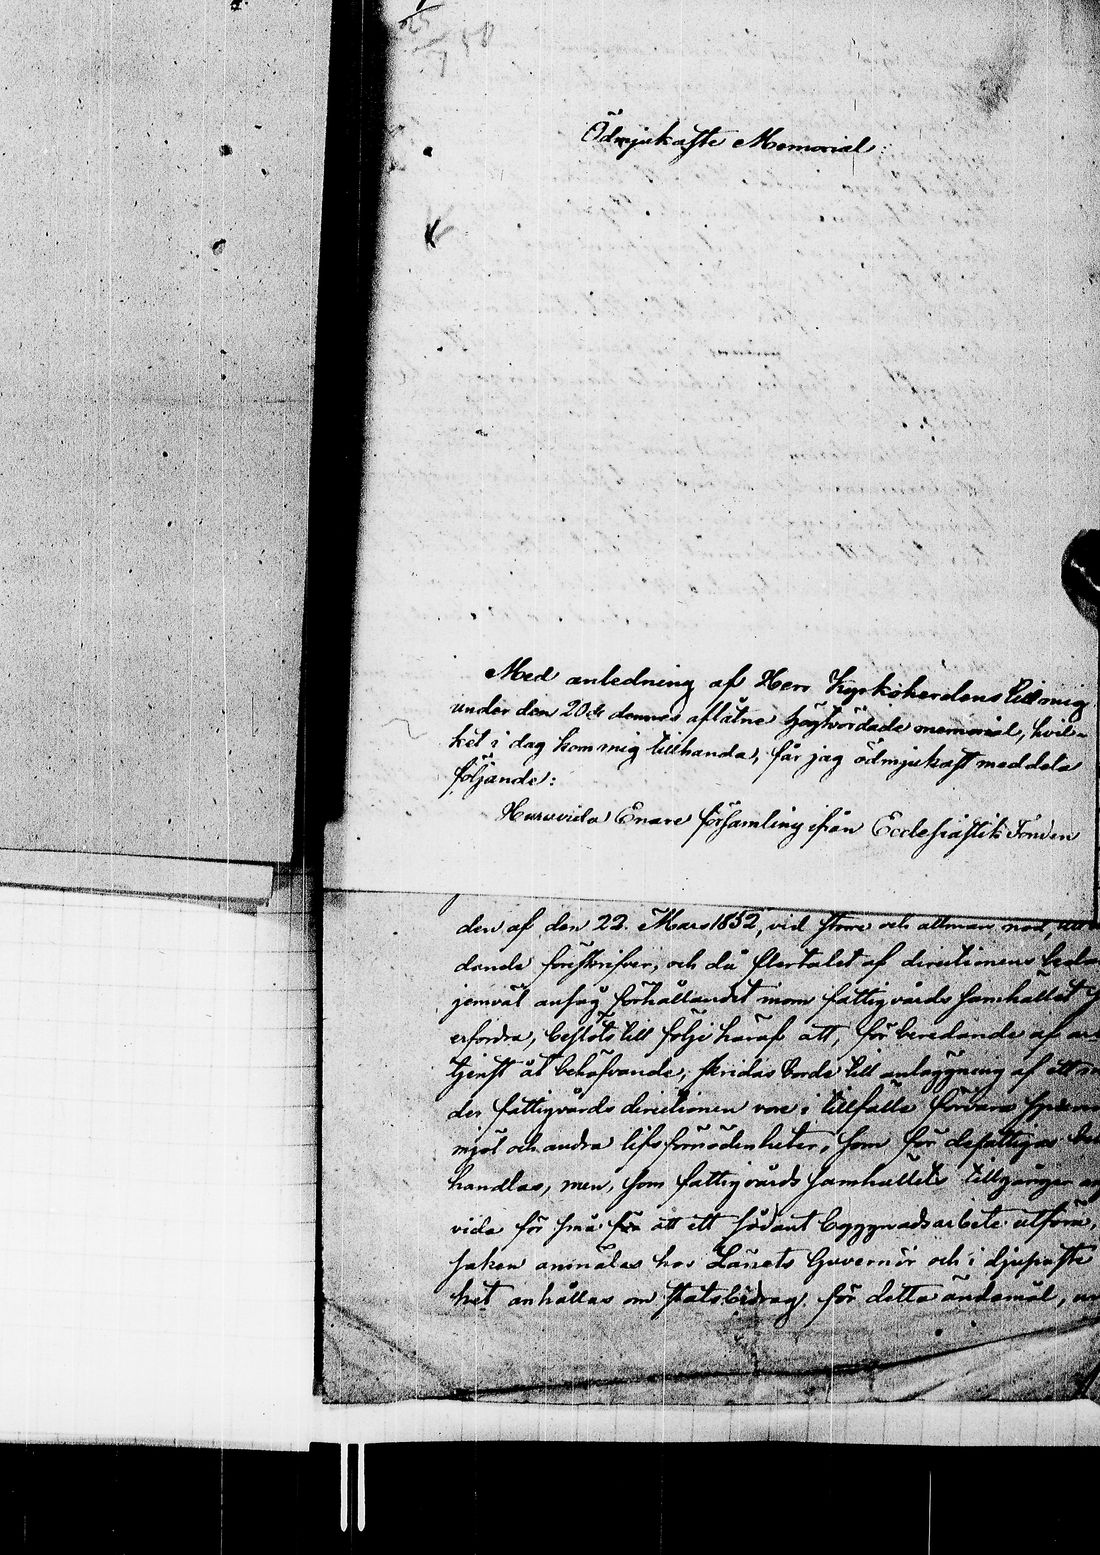 Ödmjukaste Memorial:
Med anledning af Herr Kyrkoherdens till mig
under den 20de dennes aflåtne högtvördade memorial, hvil-
ket i dag kom mig tillhanda, får jag ödmjukast meddela
följande:
Huruvida Enare församling ifrån Ecclesiastik Fonden
den af den 22. Mars 1852, vid större och allmän nöd,
dande föreskrifver, och då flertalet af directionens
jemväl ansåg förhållandet inom fattigvårds samhället
erfordra, beslöts till följe häraf att, för beredande af
tjenst åt behöfvande, skridas borde till anläggning af ett
der fattigvårds directionen vore i tillfälle förvara
mjöl och andra lifsförnödenheter, som för de fattigas
handlas, men, som fattigvårds samhällets tillgångar
vida för små för att ett sådant byggnadsarbete utföra,
saken anmälas hos Länets Guvernör och i djupaste
het anhållas om statsbidrag för detta ändamål,